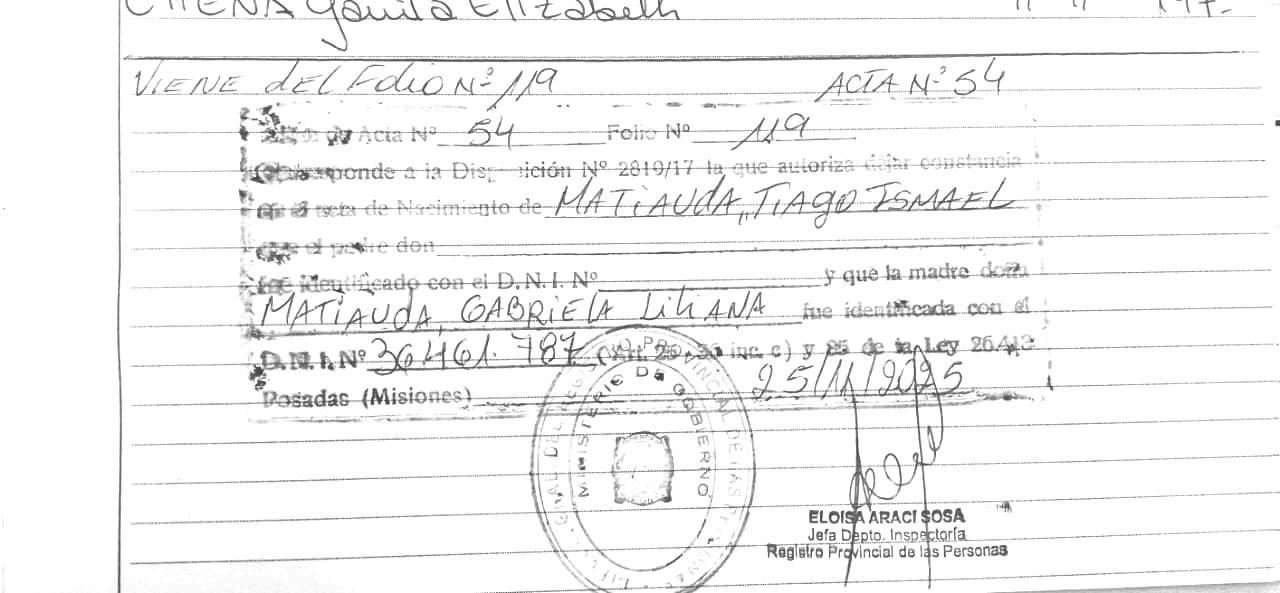 CHENA Yamila Elizabeth
VIENE del Folio Nº 119 ACTA Nº 54
de Acta Nº 54 Folio Nº 119
Corresponde a la Disposición Nº 2819/17 la que autoriza dejar constancia
en el acta de Nacimiento de MATIAUDA, TIAGO ISMAEL
que el padre don
fue identificado con el D.N.I. Nº y que la madre doña
MATIAUDA, GABRIELA LILIANA fue identificada con el
D.N.I. Nº 36461.787 (Art. 25, 36 inc. c) y 85 de la Ley 26.413
Posadas (Misiones) 25/11/2025
MINISTERIO DE GOBIERNO
PROVINCIAL DE LAS PERSONAS
ELOISA ARACI SOSA
Jefa Depto. Inspectoría
Registro Provincial de las Personas